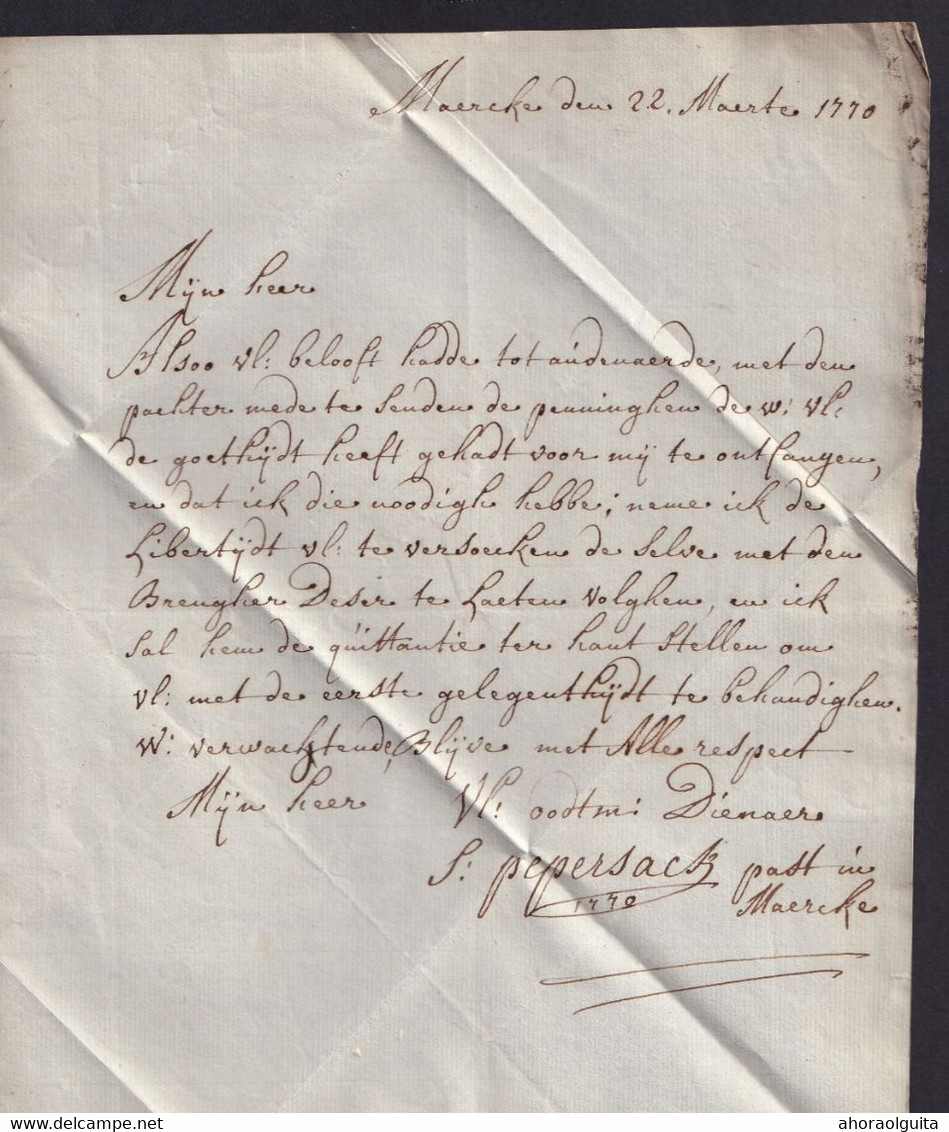 Maercke den 22. Maerte 1770
Mijn heer
Alsoo Vl: belooft hadde tot audenaerde, met den
pachter mede te senden de penninghen de w: Vl:
de goethijdt heeft gehadt voor mij te ontfangen,
en dat ick die noodigh hebbe; neme ick de
Libertijdt Vl: te versoecken de selve met den
Brengher Deser te Laeten Volghen, en ick
sal hem de quittantie ter hant stellen om
Vl: met de eerste gelegenthijdt te behandighen.
W: verwachtende, Blijve met Alle respect
Mijn heer Vl: oodtm: Dienaer
S: pepersack past in
1770 Maercke
ahoraolguita